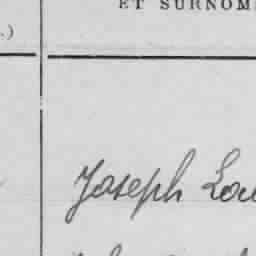 ET SURNOM
.)
Joseph Lou